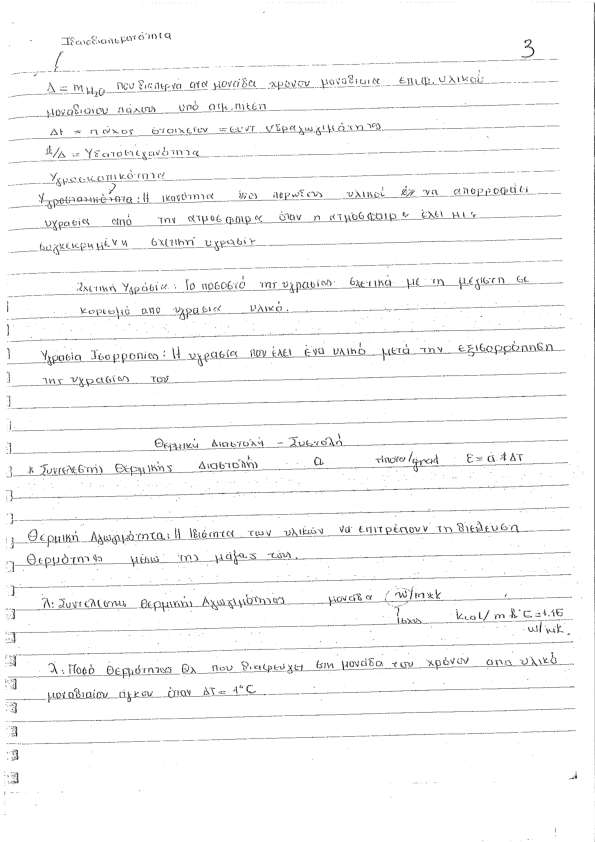 Υδατοδιαπερατότητα
3
Δ = m H₂O που διαπερνά στη μονάδα χρόνου μοναδιαία επιφ. υλικού
μοναδιαίου πάχους υπό ατμ. πίεση
Δt = πάχος στοιχείου = συντ υδραγωγιμότητας
/Δ = Υδατοστεγανότητα
Υγροσκοπικότητα
Υγροσκοπικότητα : Η ικανότητα ενός πορώδους υλικού να απορροφάει
υγρασία από την ατμόσφαιρα όταν η ατμόσφαιρα έχει μια
συγκεκριμένη σχετική υγρασία
Σχετική Υγρασία : Το ποσοστό της υγρασίας σχετικά με τη μέγιστη σε
κορεσμό από υγρασία υλικό.
Υγρασία Ισορροπίας : Η υγρασία που έχει ένα υλικό μετά την εξισορρόπηση
της υγρασίας του
Θερμική Διαστολή - Συστολή
* Συντελεστής Θερμικής Διαστολής α /grad ε = α * ΔΤ
Θερμική Αγωγιμότητα : Η Ιδιότητα των υλικών να επιτρέπουν τη διέλευση
θερμότητας μέσω της μάζας τους.
λ : Συντελεστής Θερμικής Αγωγιμότητας μονάδα (w/m*k
kcal / m h °C = 1.16
w/mk.
λ : Ποσό Θερμότητας Qλ που διαφεύγει στη μονάδα του χρόνου από υλικό
μοναδιαίου όγκου όταν ΔΤ = 1°C